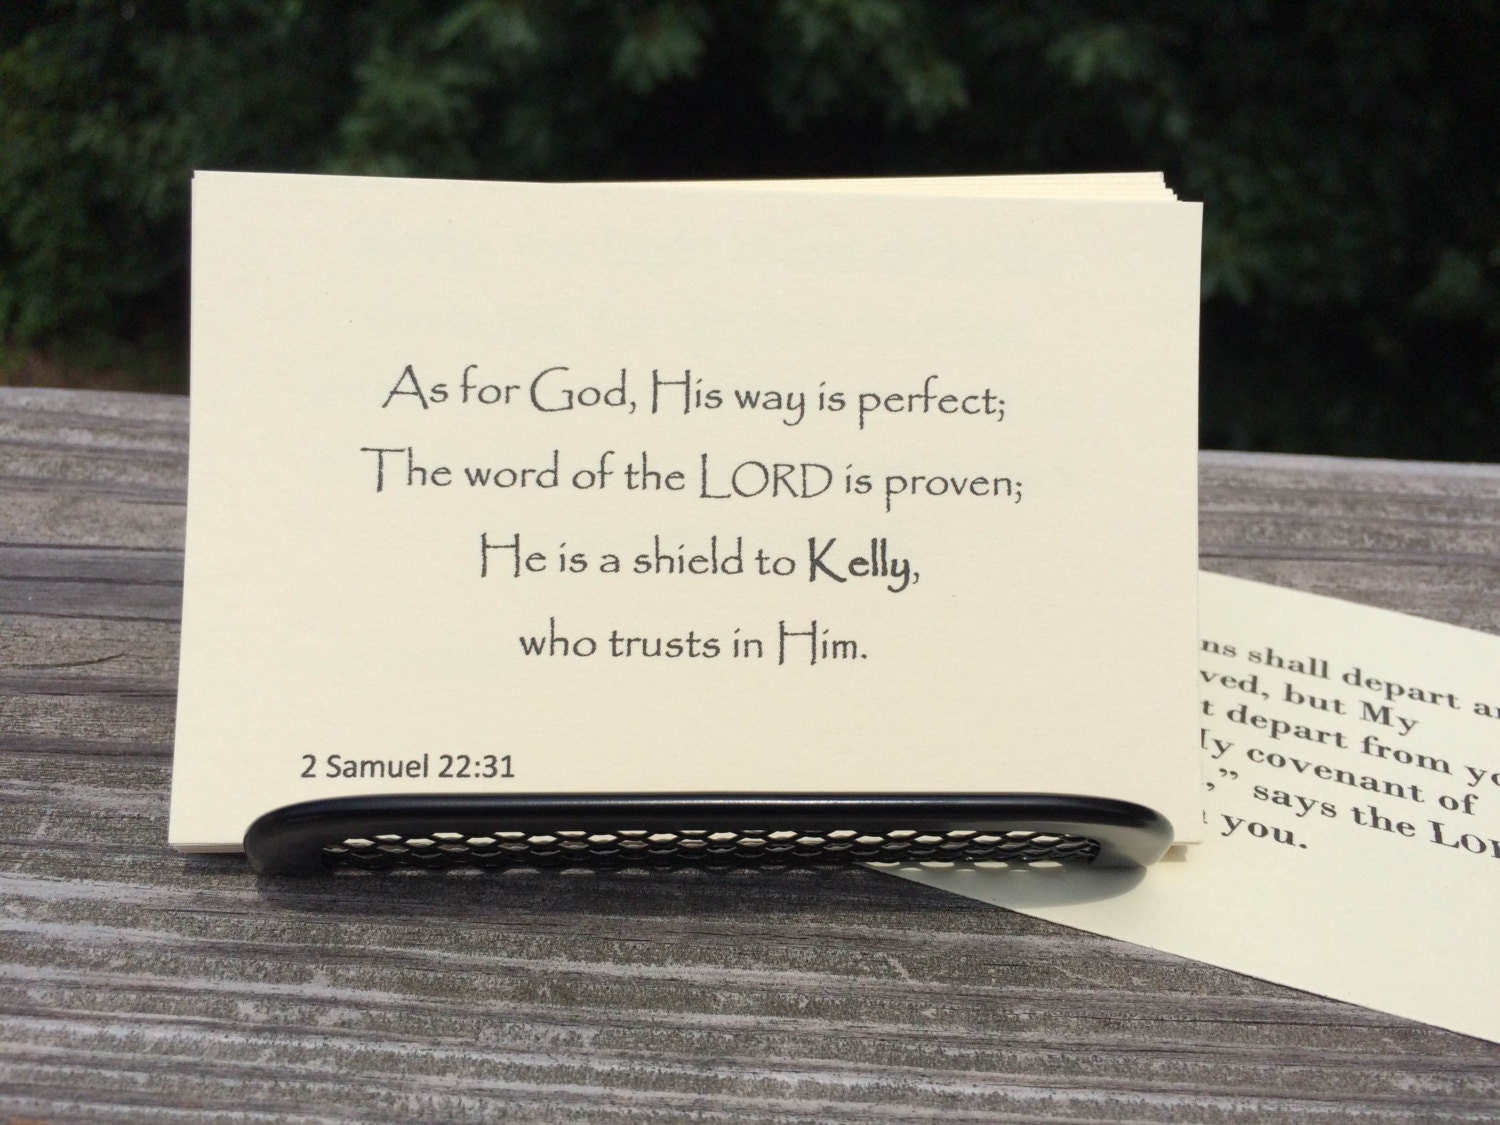 As for God, His way is perfect;
The word of the LORD is proven;
He is a shield to Kelly,
who trusts in Him.
2 Samuel 22:31
shall depart
but My
depart from
covenant of
says the
you.